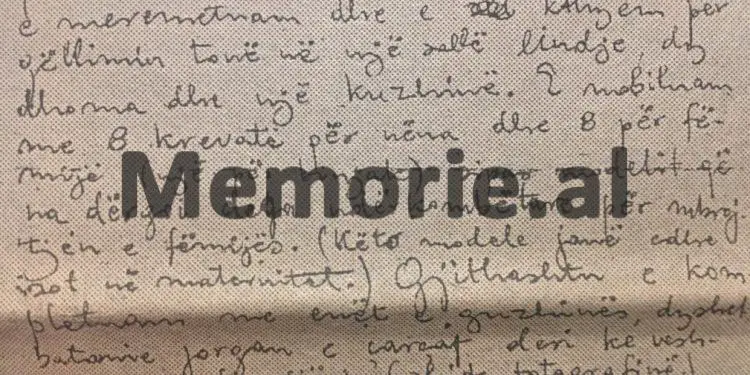 e meremetuam dhe e kthyem për
qëllimin tonë në një sallë lindje, dy
dhoma dhe një kuzhinë. E mobiluam
me 8 krevate për nëna dhe 8 për fë-
mijë modelit që
Memorie.al
na dërgoi për mbroj
tjen e fëmijës. (Këto modele janë edhe
sot në maternitet.) Gjithashtu e kom
pletuam me enët e guzhinës, dyshek
batanie jorgan e çarçaf deri ke vesh-
fotografinë!